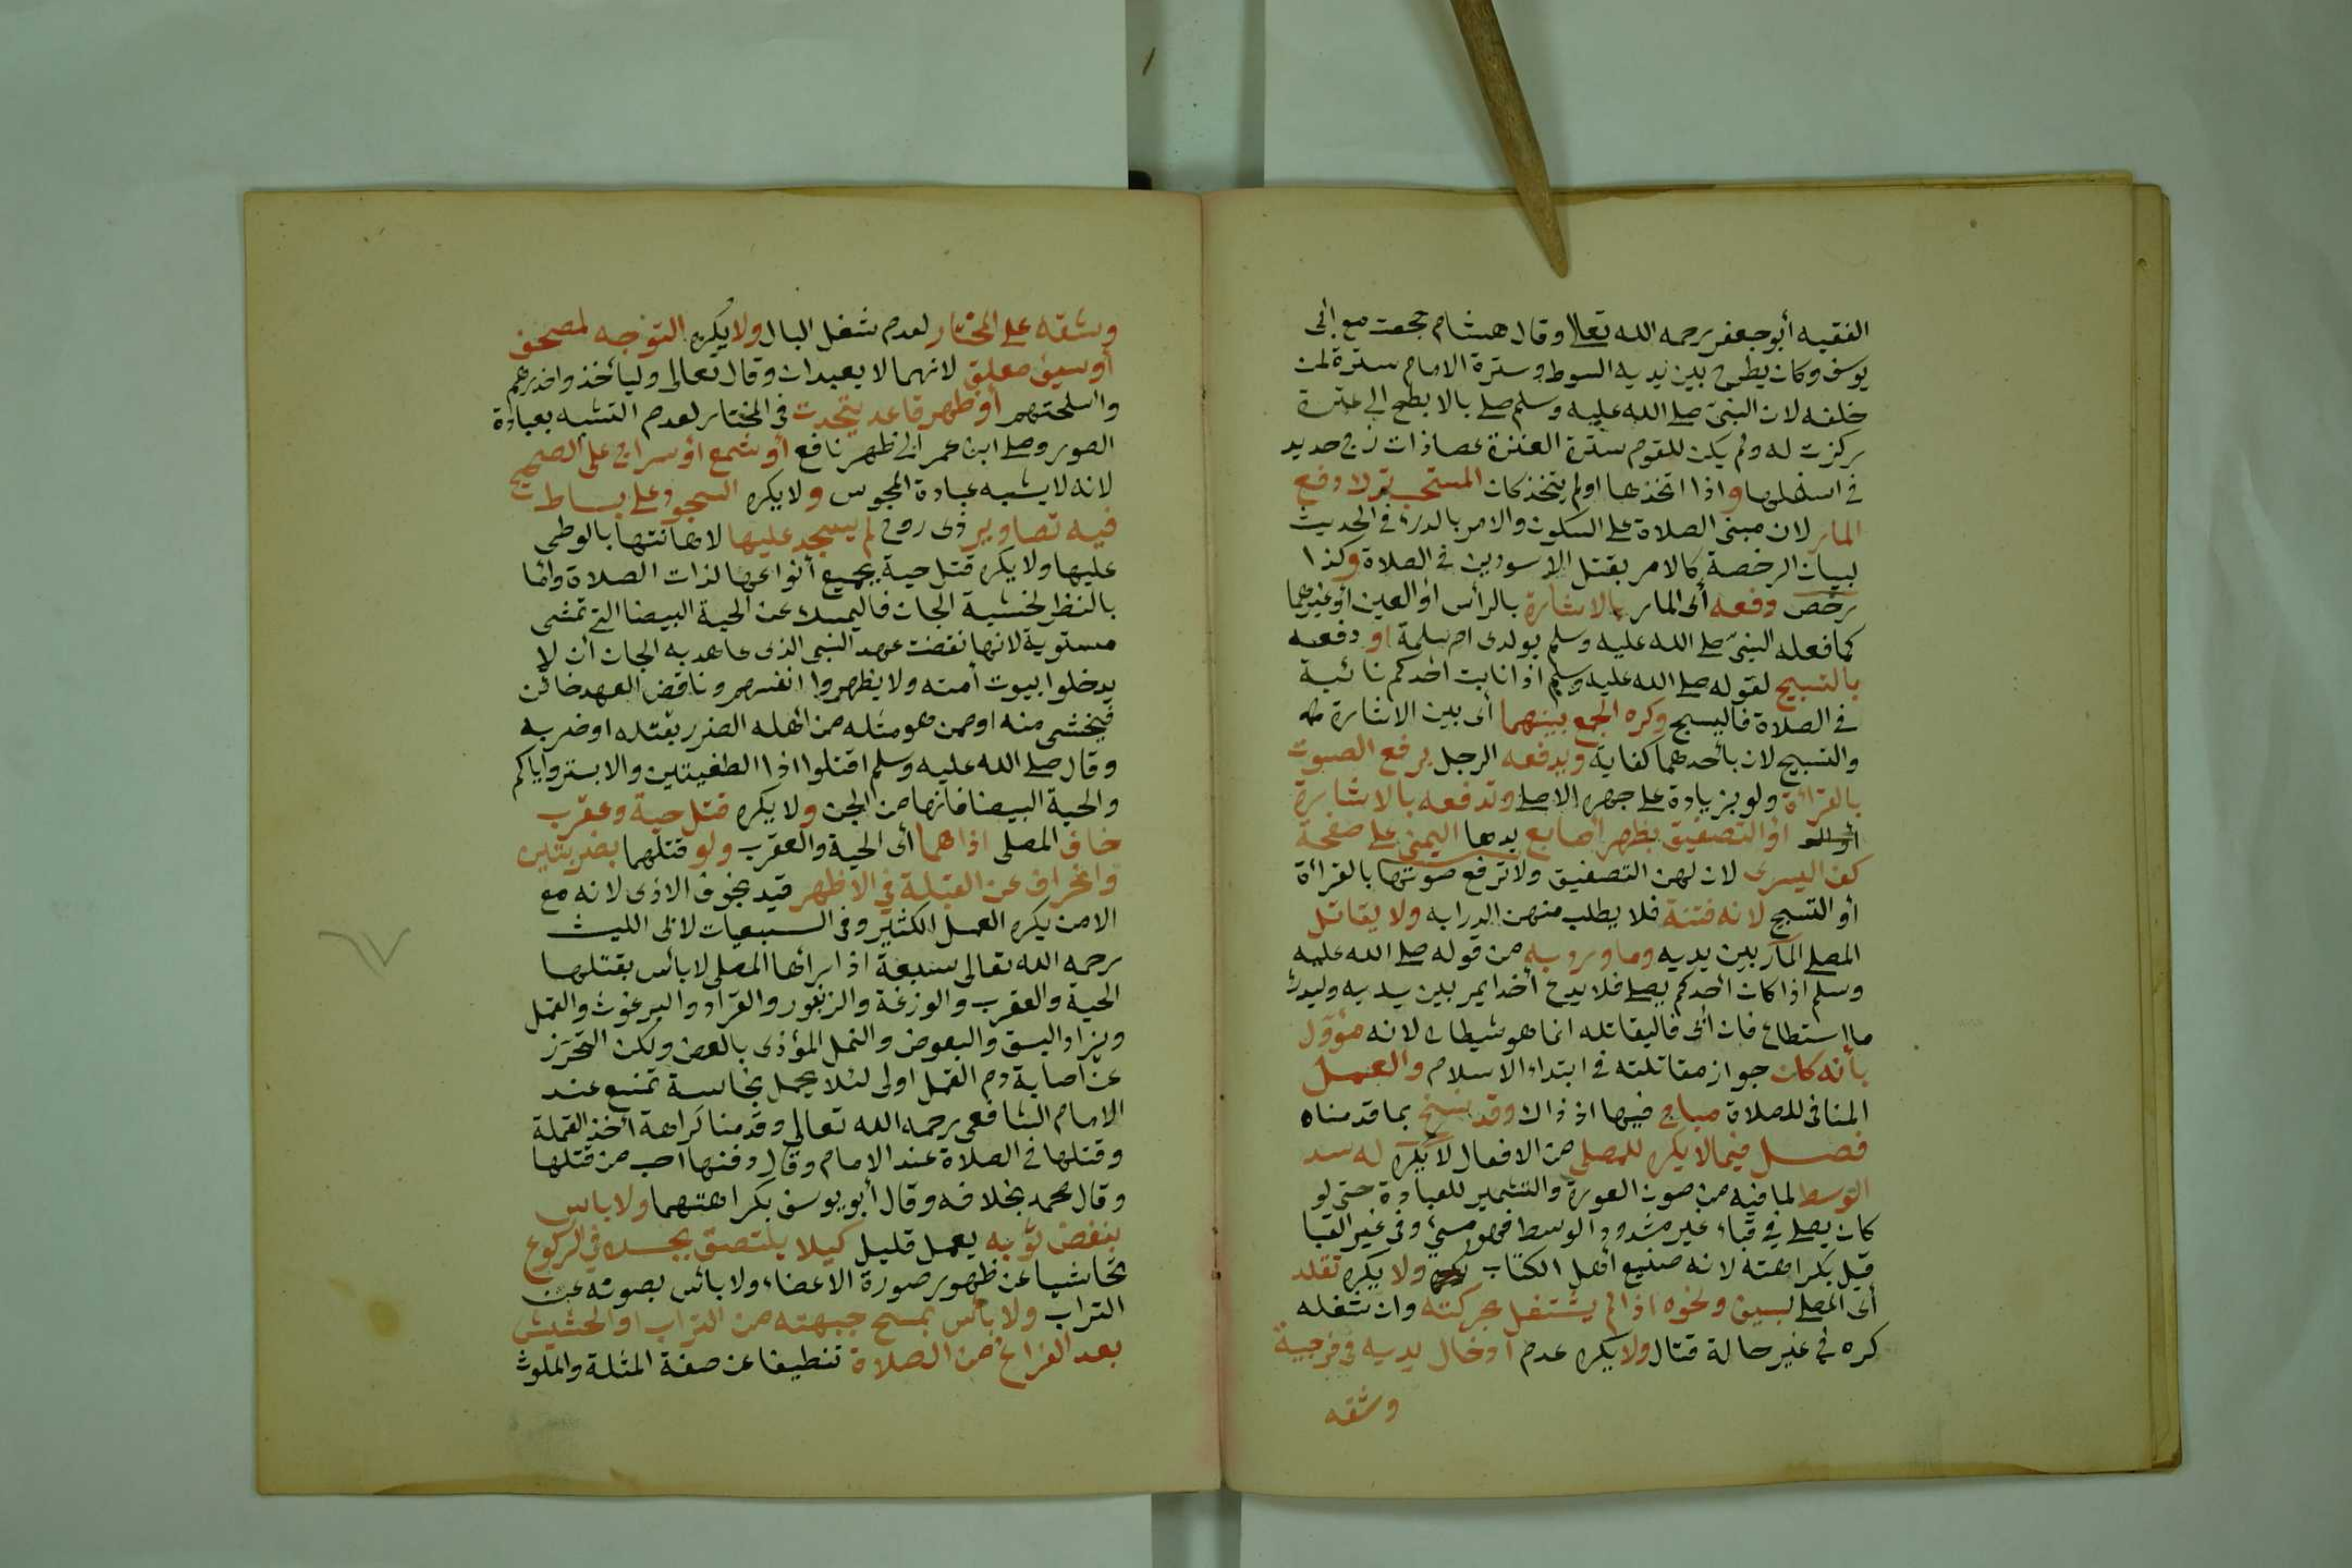 الفقيه أبو جعفر رحمه الله تعالى وقال هشام حججت مع ابى
يوسف وكان يطرح بين يديه السوط وسترة الامام سترة لمن
خلفه لان النبى صلى الله عليه وسلم صلى بالابطح الى عنزة
ركزت له ولم يكن للقوم سترة العنزة عصا ذات زج حديد
في اسفلها واذا اتخذها اولم يتخذ كان المستحب ترك دفع
المار لان مبنى الصلاة على السكون والامر بالدرء في الحديث
لبيان الرخصة كالامر بقتل الاسودين في الصلاة وكذا
رخص دفعه أى المار بالاشارة بالرأس او العين أو غيرهما
كما فعله النبى صلى الله عليه وسلم بولدى ام سلمة او دفعه
بالتسبيح لقوله صلى الله عليه وسلم اذا نابت احدكم نائبة
في الصلاة فاليسبح وكره الجمع بينهما أى بين الاشارة
والتسبيح لان بأحدهما كفاية ويدفعه الرجل برفع الصوت
بالقراءة ولو بزيادة على جهره الاصلى وتدفعه بالاشارة
او التصفيق بظهر أصابع يدها اليمنى على صفحة
كف اليسرى لان لهن التصفيق ولا ترفع صوتها بالقراءة
أو التسبيح لانه فتنة فلا يطلب منهن الدرا به ولا يقاتل
المصلى المار بين يديه وما ورد به من قوله صلى الله عليه
وسلم اذا كان أحدكم يصلى فلا يدع أحدا يمر بين يديه وليدرء
ما استطاع فان أبى فاليقاتله انما هو شيطان لانه مؤول
بأنه كان جواز مقاتلته في ابتداء الاسلام والعمل
المنافى للصلاة مباح فيها اذ ذاك وقد نسخ بما قدمناه
فصل فيما لا يكره للمصلى من الافعال لا يكره له شد
الوسط لما فيه من صون العورة والتشمير للعبادة حتى لو
كان يصلى في قباء غير مشدود الوسط فهو مسئ وفى غير القبا
قيل بكراهته لانه صنيع أهل الكتاب ولا يكره تقلد
أى المصلى بسيف ونحوه اذا لم يشتغل بحركته وان شغله
كره في غير حالة قتال ولا يكره عدم ادخال يديه في فرجية
وشقه
وشقه على المختار لعدم شغل البال ولا يكره التوجه لمصحف
أو سيف معلق لانهما لا يعبدان وقال تعالى وليأخذوا حذرهم
واسلحتهم أو ظهر قاعد يتحدث في المختار لعدم التشبه بعبادة
الصور وصلى ابن عمر الى ظهر نافع أو شمع أو سراج على الصحيح
لانه لا يشبه عبادة المجوس ولا يكره السجود على بساط
فيه تصاوير ذى روح لم يسجد عليها لاهانتها بالوطى
عليها ولا يكره قتل حية بجميع أنواعها لذات الصلاة وأما
بالنظر لخشية الجان فاليمسك عن الحية البيضا التى تمشى
مستوية لانها نقضت عهد النبى الذى عاهد به الجان ان لا
يدخلوا بيوت أمته ولا يظهروا انفسهم وناقض العهد خائن
فيخشى منه او ممن هو مثله من اهله الضرر بقتله او ضربه
وقال صلى الله عليه وسلم اقتلوا اذا الطفيتين والابتر واياكم
والحية البيضا فانها من الجن ولا يكره قتل حية وعقرب
خاف المصلى اذاهما أى الحية والعقرب ولو قتلهما بضربتين
وانحراف عن القبلة في الاظهر قيد بخوف الاذى لانه مع
الامن يكره العمل الكثير وفى السبعيات لابى الليث
رحمه الله تعالى سبعة اذا رأها المصلى لا بأس بقتلها
الحية والعقرب والوزغة والزنبور والقراد والبرغوث والقمل
ويزاد البق والبعوض والنمل المؤذى بالعض ولكن التحرز
عن اصابة دم القمل اولى لئلا يحمل نجاسة تمنع عند
الامام الشافعى رحمه الله تعالى وقدمنا كراهة أخذ القملة
وقتلها في الصلاة عند الامام وقال دفنها احب من قتلها
وقال محمد بخلافه وقال أبو يوسف بكراهتهما ولا باس
بنفض ثوبه بعمل قليل كيلا يلتصق بجسده في الركوع
تحاشيا عن ظهور صورة الاعضاء ولا بأس بصونه عن
التراب ولا بأس بمسح جبهته من التراب او الحشيش
بعد الفراغ من الصلاة تنظيفا عن صفة المثلة والملوث